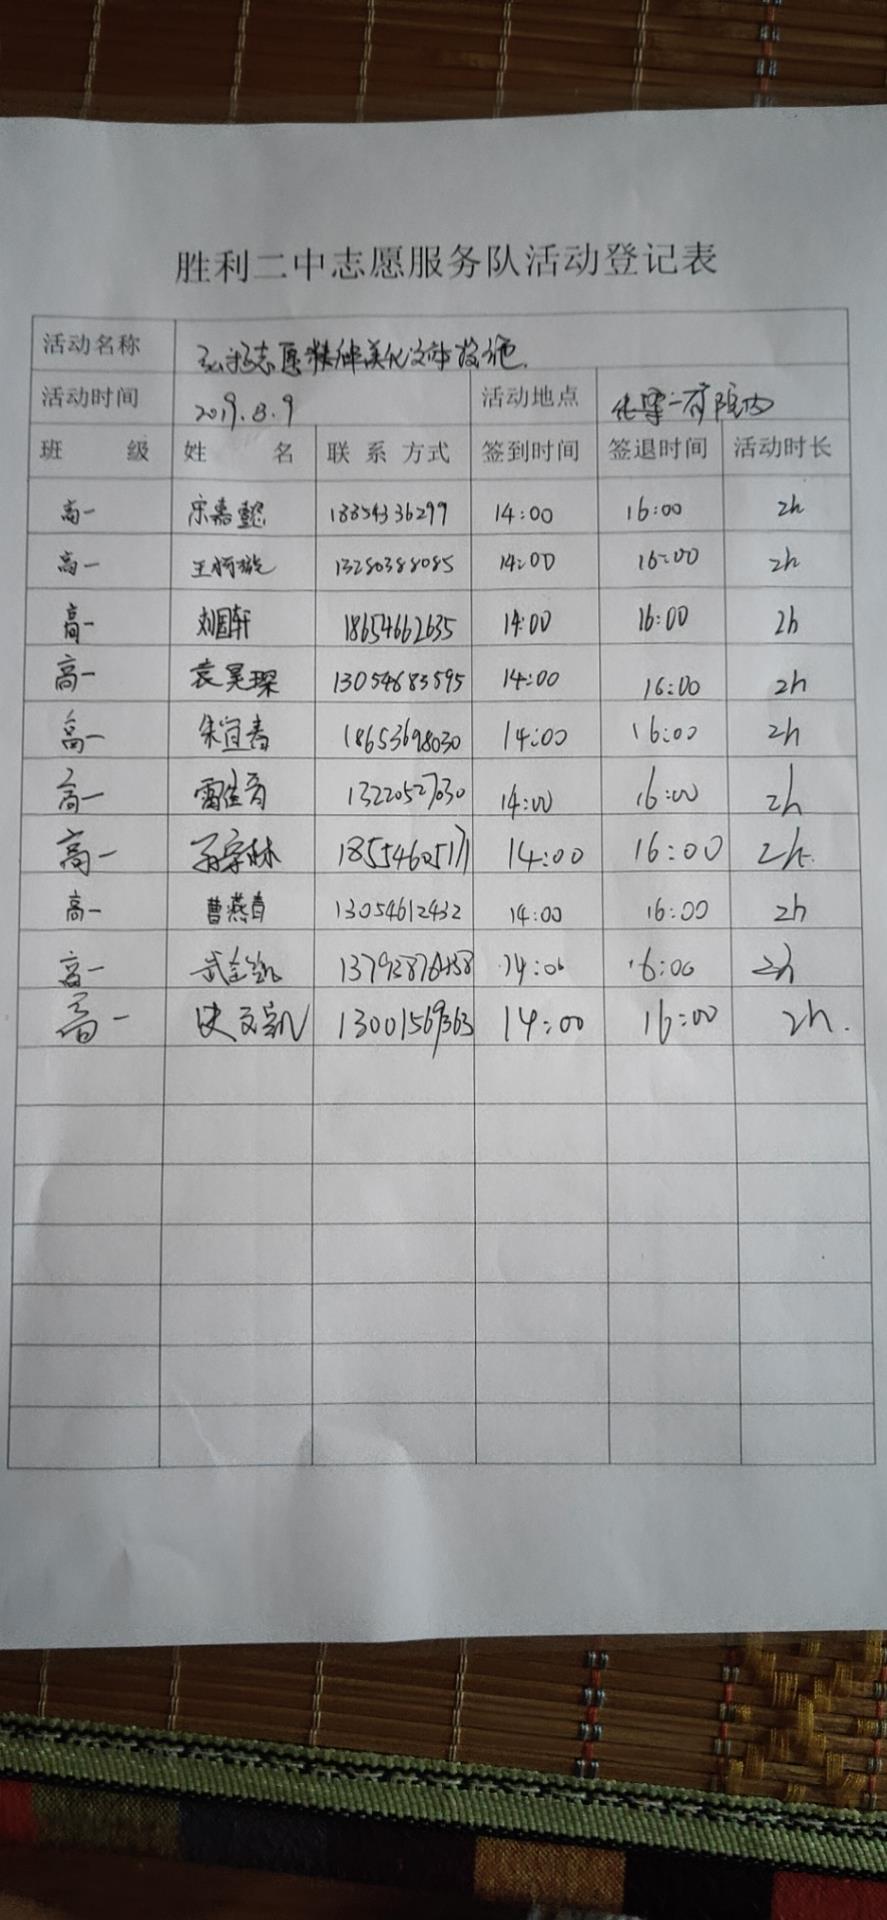 胜利二中志愿服务队活动登记表
活动名称 弘扬志愿精神美化文体设施.
活动时间 2019.8.9 活动地点 二府院内
班 级 姓 名 联系方式 签到时间 签退时间 活动时长
高一 宋嘉懿 18854336299 14:00 16:00 2h
高一 王炳璇 13280388085 14:00 16:00 2h
高一 刘国轩 18654662635 14:00 16:00 2h
高一 袁昊琛 13054683595 14:00 16:00 2h
高一 朱宜春 18653698030 14:00 16:00 2h
高一 雷佳音 13220527030 14:00 16:00 2h
高一 林 18554605171 14:00 16:00 2h.
高一 曹燕青 13054612432 14:00 16:00 2h
高一 武金凯 13793876458 14:00 16:00 2h
高一 史文凯 13001569363 14:00 16:00 2h.